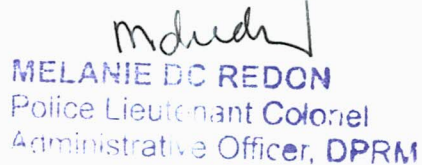 MELANIE DC REDON
Police Lieutenant Colonel
Administrative Officer, DPRM